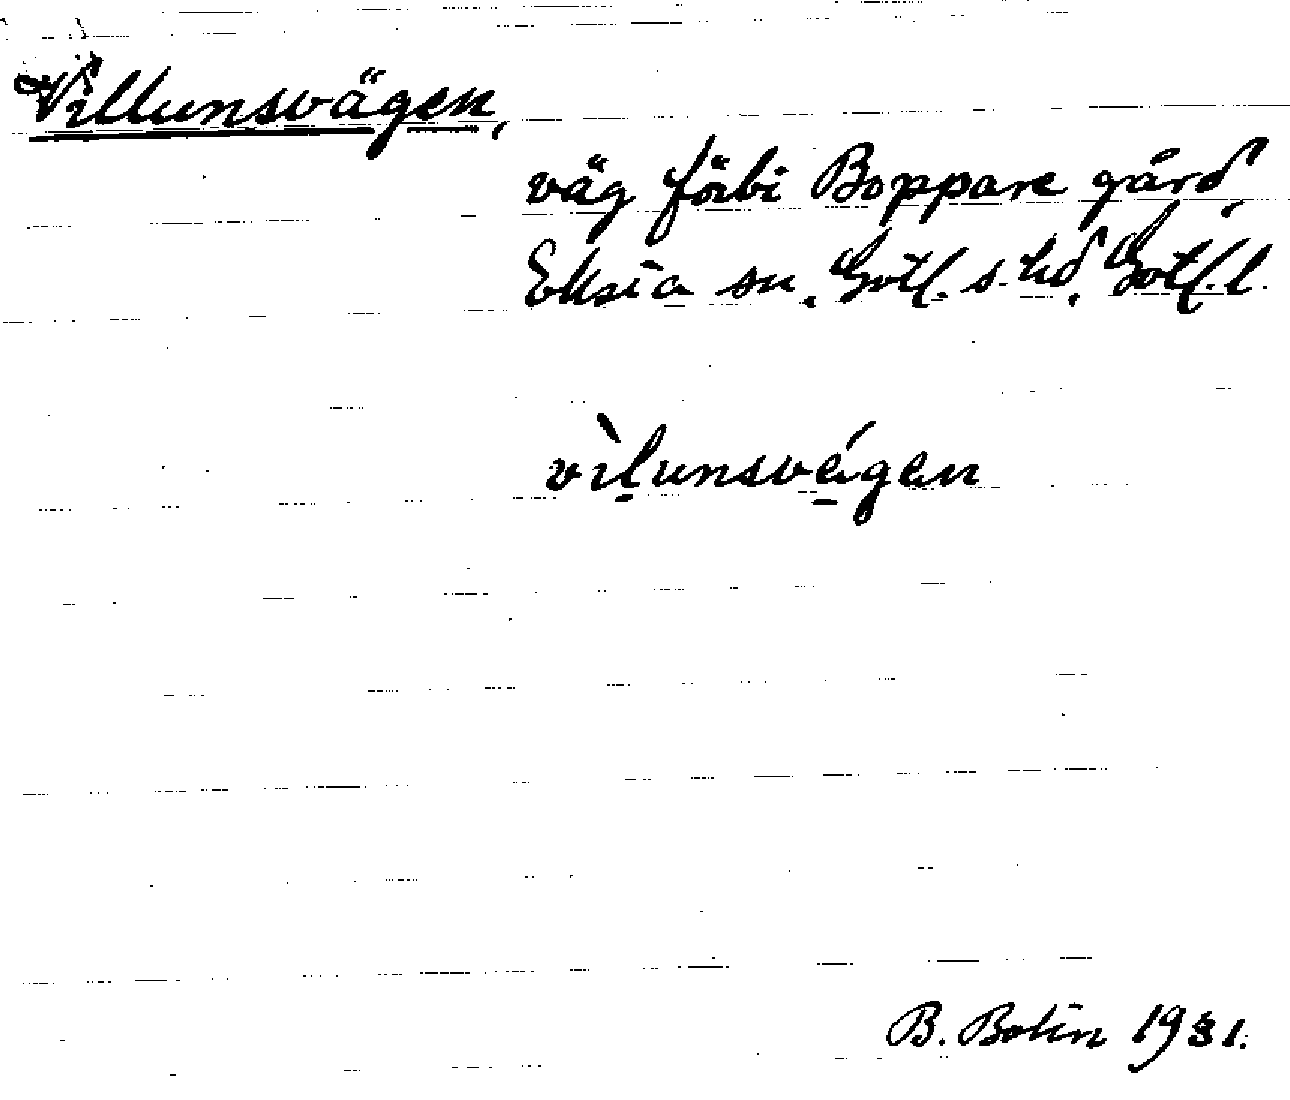 Villunsvägen,
väg förbi Boppare gård,
Eksta sn. Gotl. s. hd, Gotl. l.
vìḷunsvé̱gen
B. Bolin 1931.